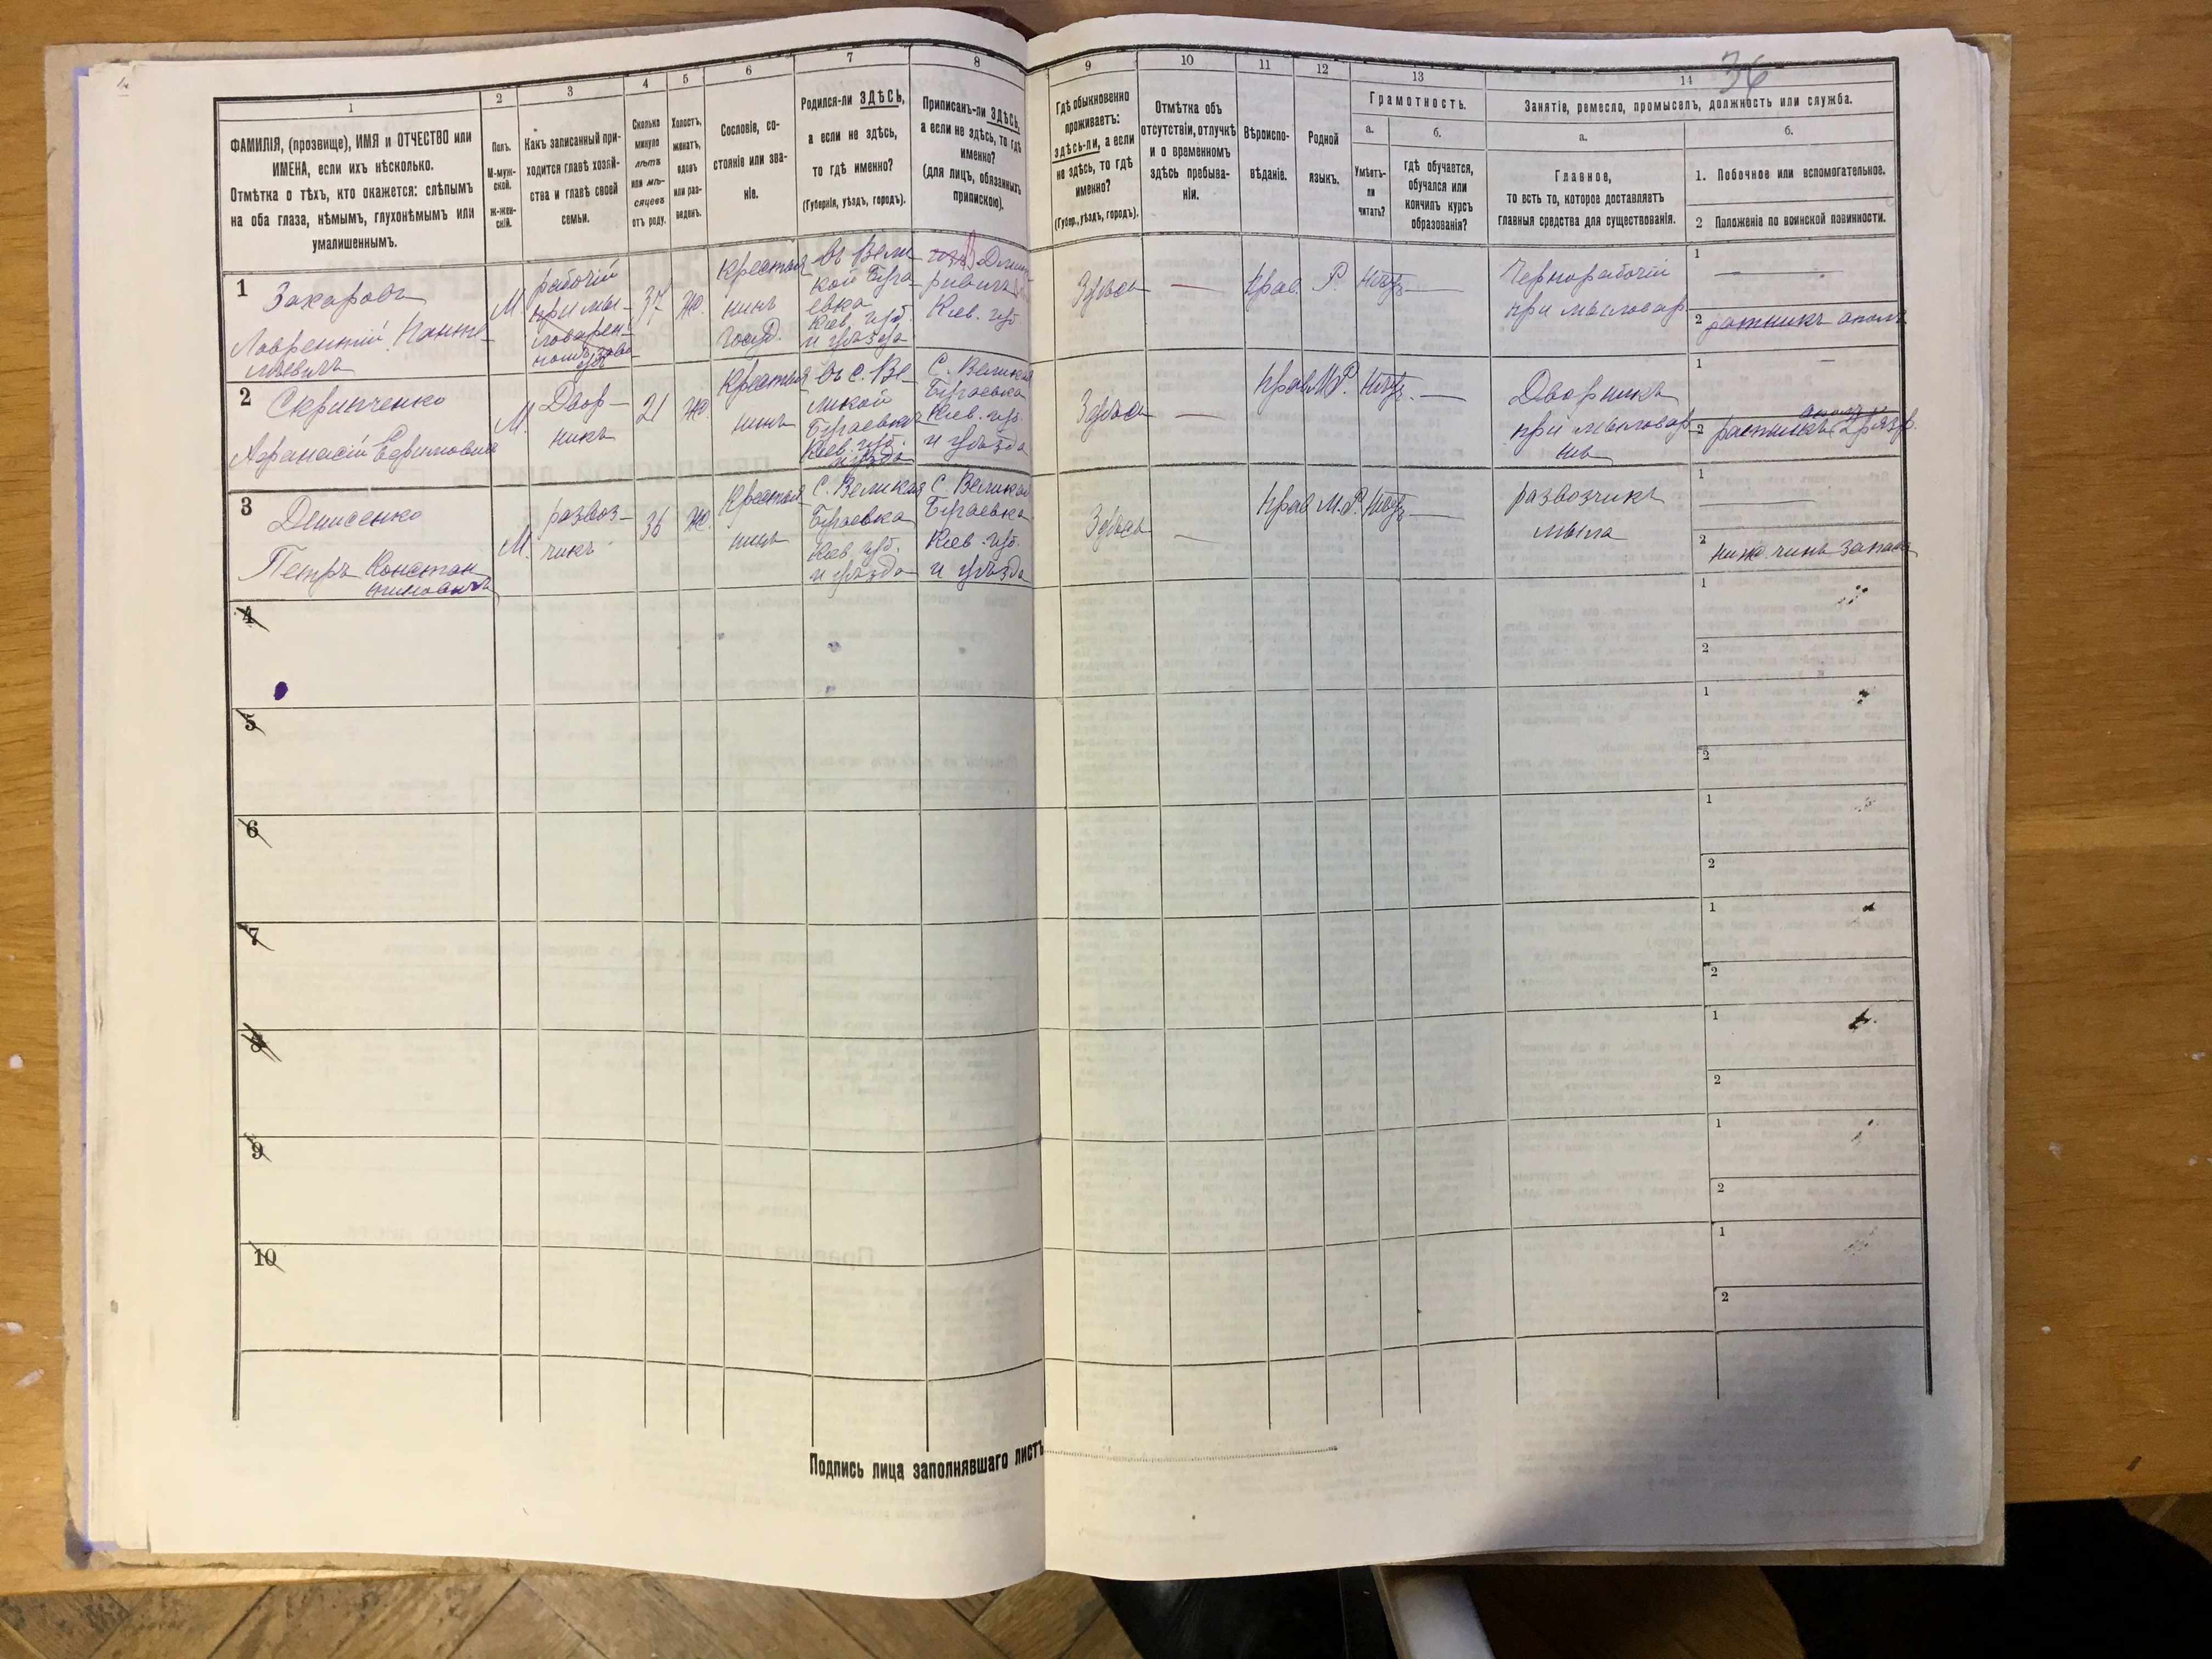 36
1
2
3
4
5
6
7
8
9
10
11
12
13
14
ФАМИЛІЯ, (прозвище), ИМЯ и ОТЧЕСТВО или
ИМЕНА, если ихъ нѣсколько.
Отмѣтка о тѣхъ, кто окажется: слѣпымъ
на оба глаза, нѣмымъ, глухонѣмымъ или
умалишеннымъ.
Полъ.
М-муж-
ской.
Ж-жен-
скій.
Какъ записанный при-
ходится главѣ хозяй-
ства и главѣ своей
семьи.
Сколько
минуло
лѣтъ
или мѣ-
сяцевъ
отъ роду.
Холостъ,
женатъ,
вдовъ
или раз-
веденъ.
Сословіе, со-
стояніе или зва-
ніе.
Родился-ли ЗДѢСЬ,
а если не здѣсь,
то гдѣ именно?
(Губернія, уѣздъ, городъ).
Приписанъ-ли ЗДѢСЬ,
а если не здѣсь, то гдѣ
именно?
(для лицъ, обязанныхъ
припискою).
Гдѣ обыкновенно
проживаетъ:
здѣсь-ли, а если
не здѣсь, то гдѣ
именно?
(Губер., уѣздъ, городъ).
Отмѣтка объ
отсутствіи, отлучкѣ
и о временномъ
здѣсь пребыва-
ніи.
Вѣроиспо-
вѣданіе.
Родной
языкъ.
Грамотность.
а.
Умѣетъ-
ли
читать?
б.
гдѣ обучается,
обучался или
кончилъ курсъ
образованія?
Занятіе, ремесло, промыселъ, должность или служба.
а.
Главное,
то есть то, которое доставляетъ
главныя средства для существованія.
б.
1. Побочное или вспомогательное.
2 Положеніе по воинской повинности.
1
Захаровъ
Лаврентій Панте-
лѣевичъ
М.
рабочій
при мы-
ловарен-
номъ заво-
дѣ
37
Ж.
Крестья
нинъ
Госуд.
Въ Вели
кой Буга
евка
Кіев. губ.
и уѣзда
Кіев. губ
Здѣсь
—
Прав.
Р.
—
Чернорабочій
при мыловар.
1
—
2
ратникъ ополч
2
Скрипченко
Афанасій Ефимовичъ
М.
Двор-
никъ
21
Ж.
Крестья
нинъ
Въ с. Ве
ликой
Бугаевка
Кіев. губ.
и уѣзда
С. Великая
Бугаевка
Кіев. губ.
и уѣзда
Здѣсь
—
Прав
М.Р.
—
Дворникъ
при мыловар-
нѣ
1
—
2
ополч.
ратникъ 2 разр.
3
Денисенко
Петръ Констан
тиновичъ
М.
развоз-
чикъ
36
Ж.
Крестья
нинъ
С. Великая
Бугаевка
Кіев губ.
и уѣзда
С. Великая
Бугаевка
Кіев. губ.
и уѣзда
Здѣсь
—
Прав
М.Р.
—
развозчикъ
мыла
1
—
2
ниж. чинъ запаса
4
1
2
5
1
2
6
1
2
7
1
2
8
1
2
9
1
2
10
1
2
Подпись лица заполнявшаго листъ